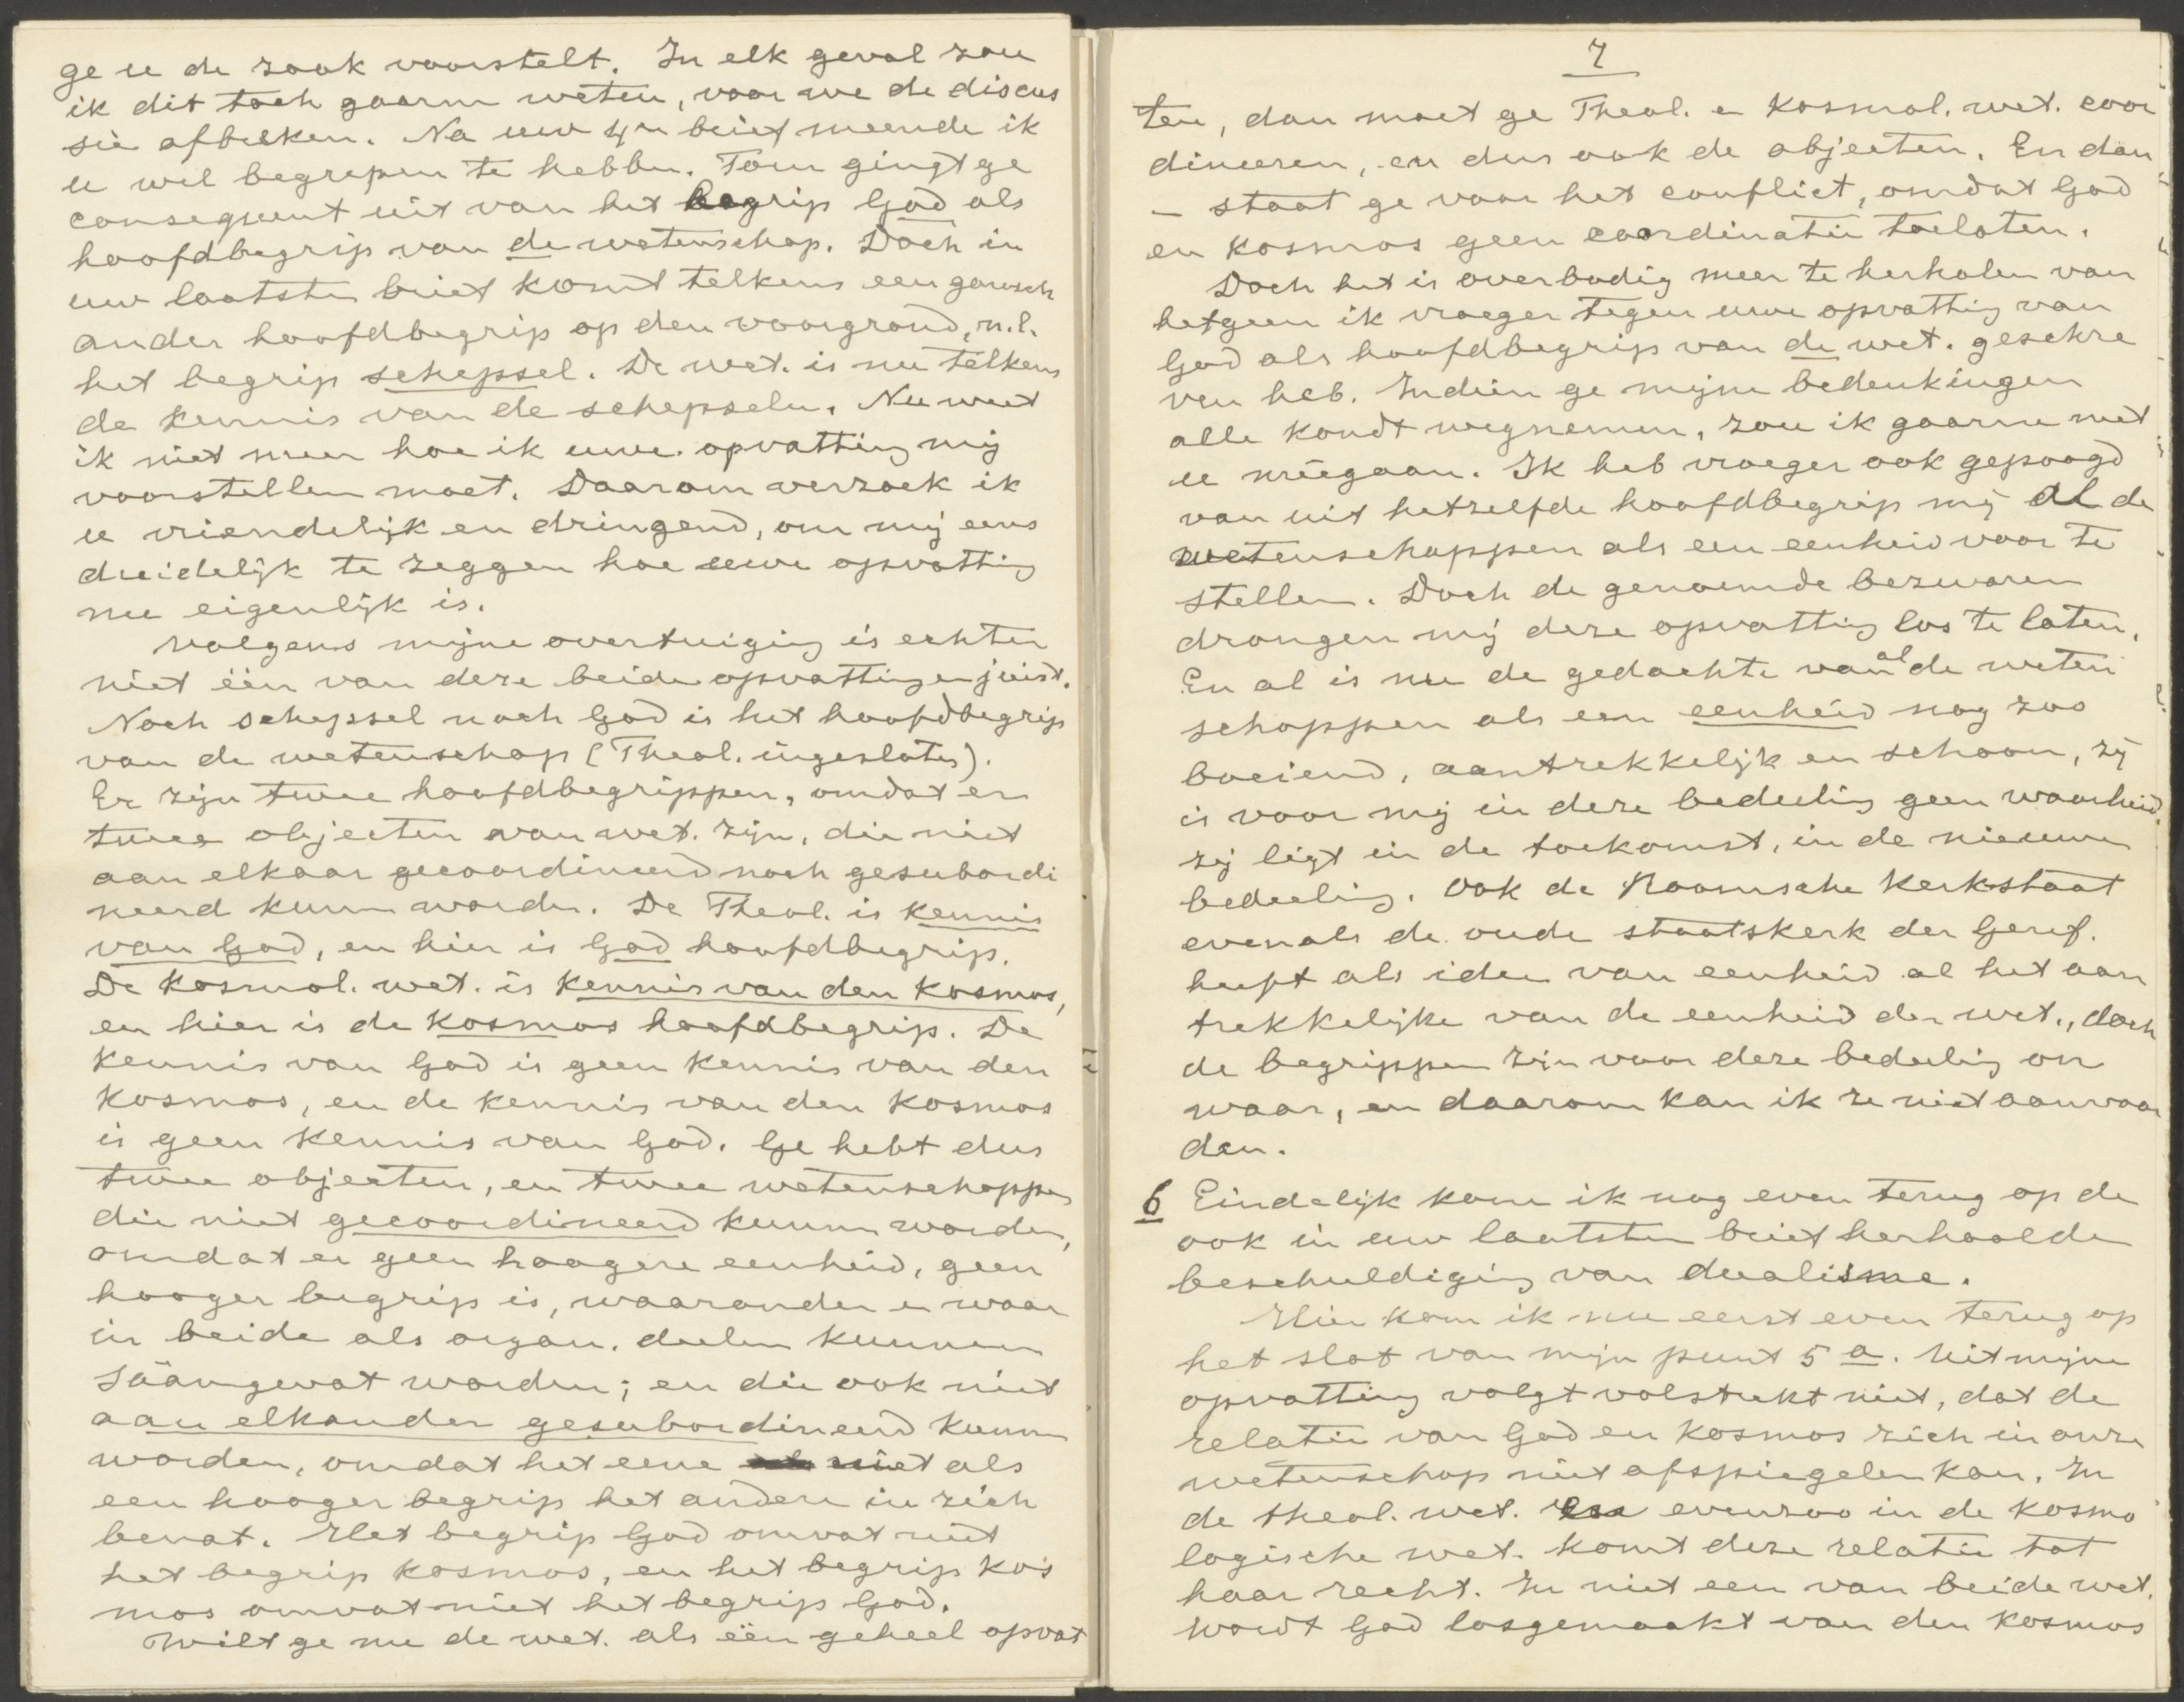 ge u de zaak voorstelt. In elk geval zou
ik dit toch gaarne weten, voor we de discus
sie afbreken. Na uw 4en brief meende ik
u wel begrepen te hebben. Toen gingt ge
consequent uit van het begrip God als
hoofdbegrip van de wetenschap. Doch in
uw laatsten brief komt telkens een gansch
ander hoofdbegrip op den voorgrond, n.l.
het begrip schepsel. De wet. is nu telkens
de kennis van de schepselen. Nu weet
ik niet meer hoe ik uwe opvatting mij
voorstellen moet. Daarom verzoek ik
u vriendelijk en dringend, om mij eens
duidelijk te zeggen hoe uwe opvatting
nu eigenlijk is.
Volgens mijne overtuiging is echter
niet één van deze beide opvattingen juist.
Noch schepsel noch God is het hoofdbegrip
van de wetenschap (Theol. ingesloten).
Er zijn twee hoofdbegrippen, omdat er
twee objecten van wet. zijn, die niet
aan elkaar gecoordineerd noch gesubordi
neerd kunnen worden. De Theol. is kennis
van God, en hier is God hoofdbegrip.
De kosmol. wet. is kennis van den kosmos,
en hier is de kosmos hoofdbegrip. De
kennis van God is geen kennis van den
kosmos, en de kennis van den kosmos
is geen kennis van God. Ge hebt dus
twee objecten, en twee wetenschappen
die niet gecoordineerd kunnen worden,
omdat er geen hoogere eenheid, geen
hooger begrip is, waaronder en waar
in beide als organ. deelen kunnen
sáámgevat worden; en die ook niet
aan elkander gesubordineerd kunnen
worden, omdat het eene niet als
een hooger begrip het andere in zich
bevat. Het begrip God omvat niet
het begrip kosmos, en het begrip kos
mos omvat niet het begrip God.
Wilt ge nu de wet. als één geheel opvat
7
ten, dan moet ge Theol. en Kosmol. wet. coor
dineeren, en dus ook de objecten. En dan
– staat ge voor het conflict, omdat God
en kosmos geen coordinatie toelaten.
Doch het is overbodig meer te herhalen van
hetgeen ik vroeger tegen uwe opvatting van
God als hoofdbegrip van de wet. geschre
ven heb. Indien ge mijne bedenkingen
alle kondt wegnemen, zou ik gaarne met
u méégaan. Ik heb vroeger ook gepoogd
van uit hetzelfde hoofdbegrip mij al de
wetenschappen als een eenheid voor te
stellen. Doch de genoemde bezwaren
drongen mij deze opvatting los te laten.
En al is nu de gedachte van al de weten
schappen als een eenheid nog zoo
boeiend, aantrekkelijk en schoon, zij
is voor mij in deze bedeeling geen waarheid.
zij ligt in de toekomst, in de nieuwe
bedeeling. Ook de Roomsche Kerkstaat
evenals de oude staatskerk der Geref.
heeft als idee van eenheid al het aan
trekkelijke van de eenheid der wet., doch
de begrippen zijn voor deze bedeeling on
waar, en daarom kan ik ze niet aanvaar
den.
6 Eindelijk kom ik nog even terug op de
ook in uw laatsten brief herhaalde
beschuldiging van dualisme.
Hier kom ik nu eerst even terug op
het slot van mijn punt 5 a. Uit mijne
opvatting volgt volstrekt niet, dat de
relatie van God en kosmos zich in onze
wetenschap niet afspiegelen kan. In
de theol. wet. evenzoo in de kosmo
logische wet. komt deze relatie tot
haar recht. In niet een van beide wet.
wordt God losgemaakt van den kosmos